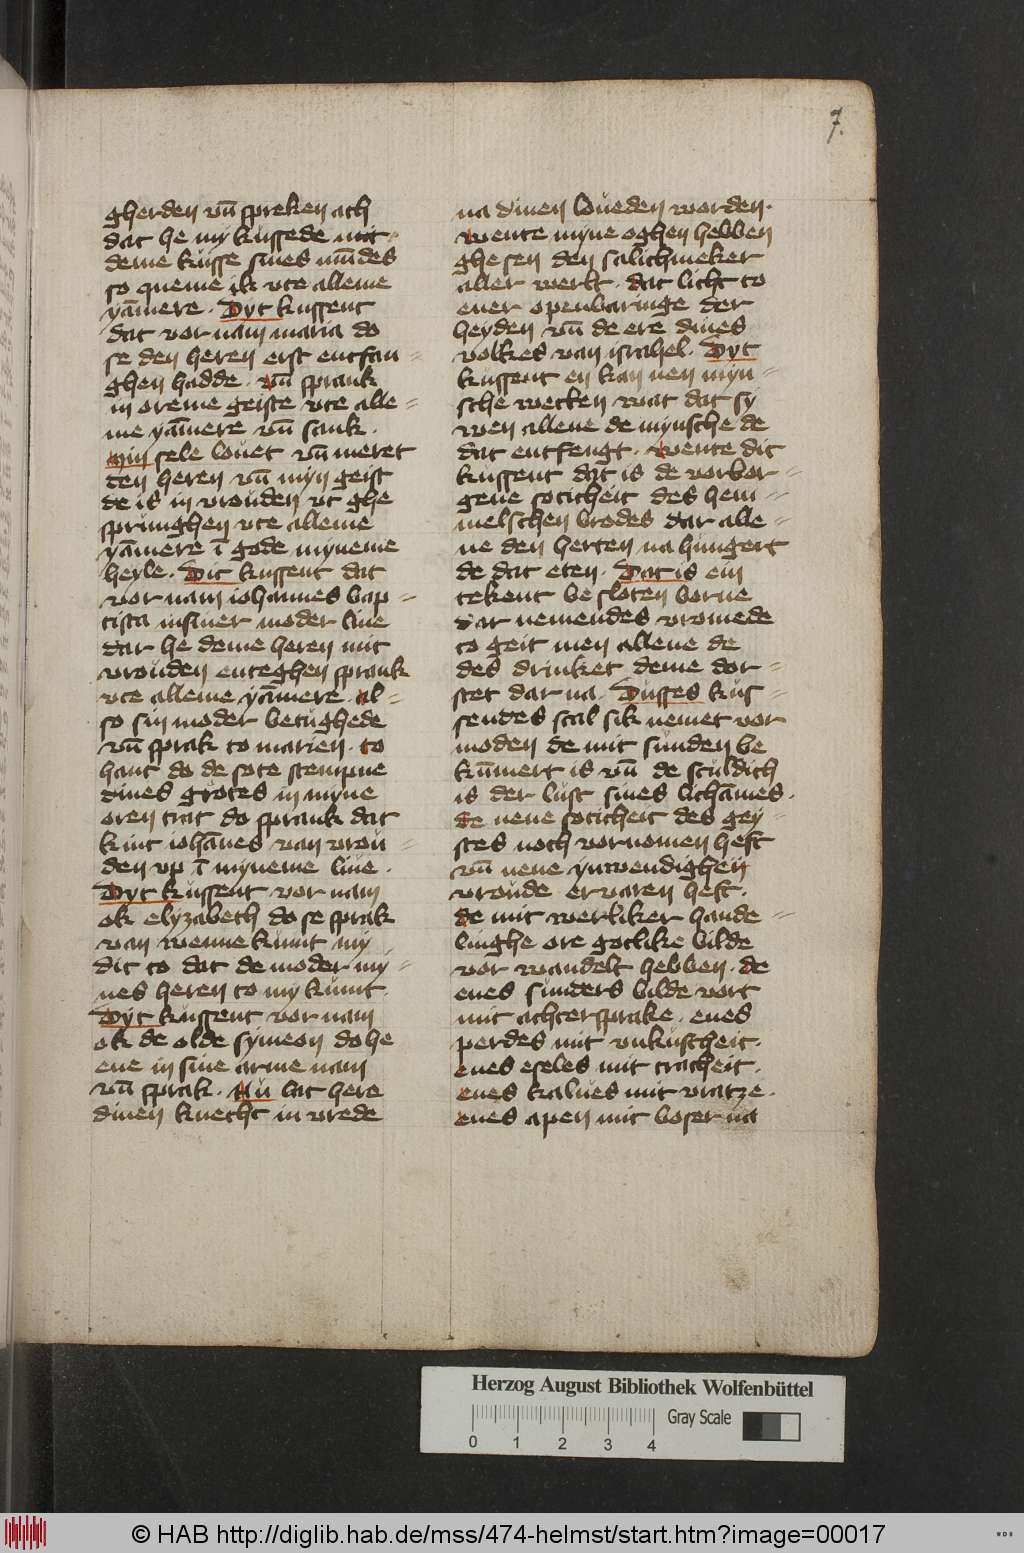 7.
gherden vn̄ spreken ach
dat he my kussede mit
deme kusse sines mūdes
so queme ik vte alleme
yāmere. Dyt kussent
dat vor nam maria do
se den heren erst entfan=
ghen hadde. vn̄ sprank
in oreme geiste vte alle=
me yāmere vn̄ sank.
Min sele louet vn̄ meret
den heren vn̄ myn geist
de is in vrouden vt ghe
sprunghen vte alleme
yāmere ī gode myneme
heyle. Dit kussent dat
vor nam iohannes bap=
tista in siner moder liue
dar he deme heren mit
vrouden enteghen sprank
vte alleme yāmere. al=
so sin moder betughede
vn̄ sprak to marien. to
hant do de sote stempne
dines grotes in myne
oren trat do sprank dat
kint iohānes van vrou=
den vp ī myneme liue.
Dyt kussent vor nam
ok elyzabeth do se sprak
van wenne kumt my
dit to dat de moder my=
nes heren to my kumt.
Dyt kussent vor nam
ok de olde symeon do he
ene in sine arme nam
vn̄ sprak. Nu lat here
dinen knecht in vrede
na dinen loueden worden.
wente myne oghen hebben
ghesen den salichmeker
aller werlt. dat licht to
ener openbaringe der
heyden vn̄ de ere dines
volkes van israhel. Dyt
kussent en kan nen myn=
sche wecken wat dat sy
wen allene de mynsche de
dat entfengt. wente dit
kussent dat is de vorbor=
gene soticheit des hem=
melschen brodes dar alle=
ne den herten na hungert
de dat eten. Dat is ein
tekent be sloten borne
dar nemendes vromede
to geit men allene de
des drinket deme dor=
stet dar na. Dusses kus=
sendes scal sik nemet vor
moden de mit sunden be
kūmert is vn̄ de sculdich
is der lust sines lichāmes.
de nene soticheit des gey=
stes noch vornomen heft
vn̄ nene ynwendighen
vroude ervaren heft.
de mit werliker hande=
linghe ore gotlike bilde
vor wandelt hebben. de
enes sunders bilde vort
mit achtersprake. enes
perdes mit vnkuscheit.
enes eseles mit tracheit.
enes kalues mit vratze.
enes apen mit boser na
Herzog August Bibliothek Wolfenbüttel
Gray Scale
0 1 2 3 4
© HAB http://diglib.hab.de/mss/474-helmst/start.htm?image=00017